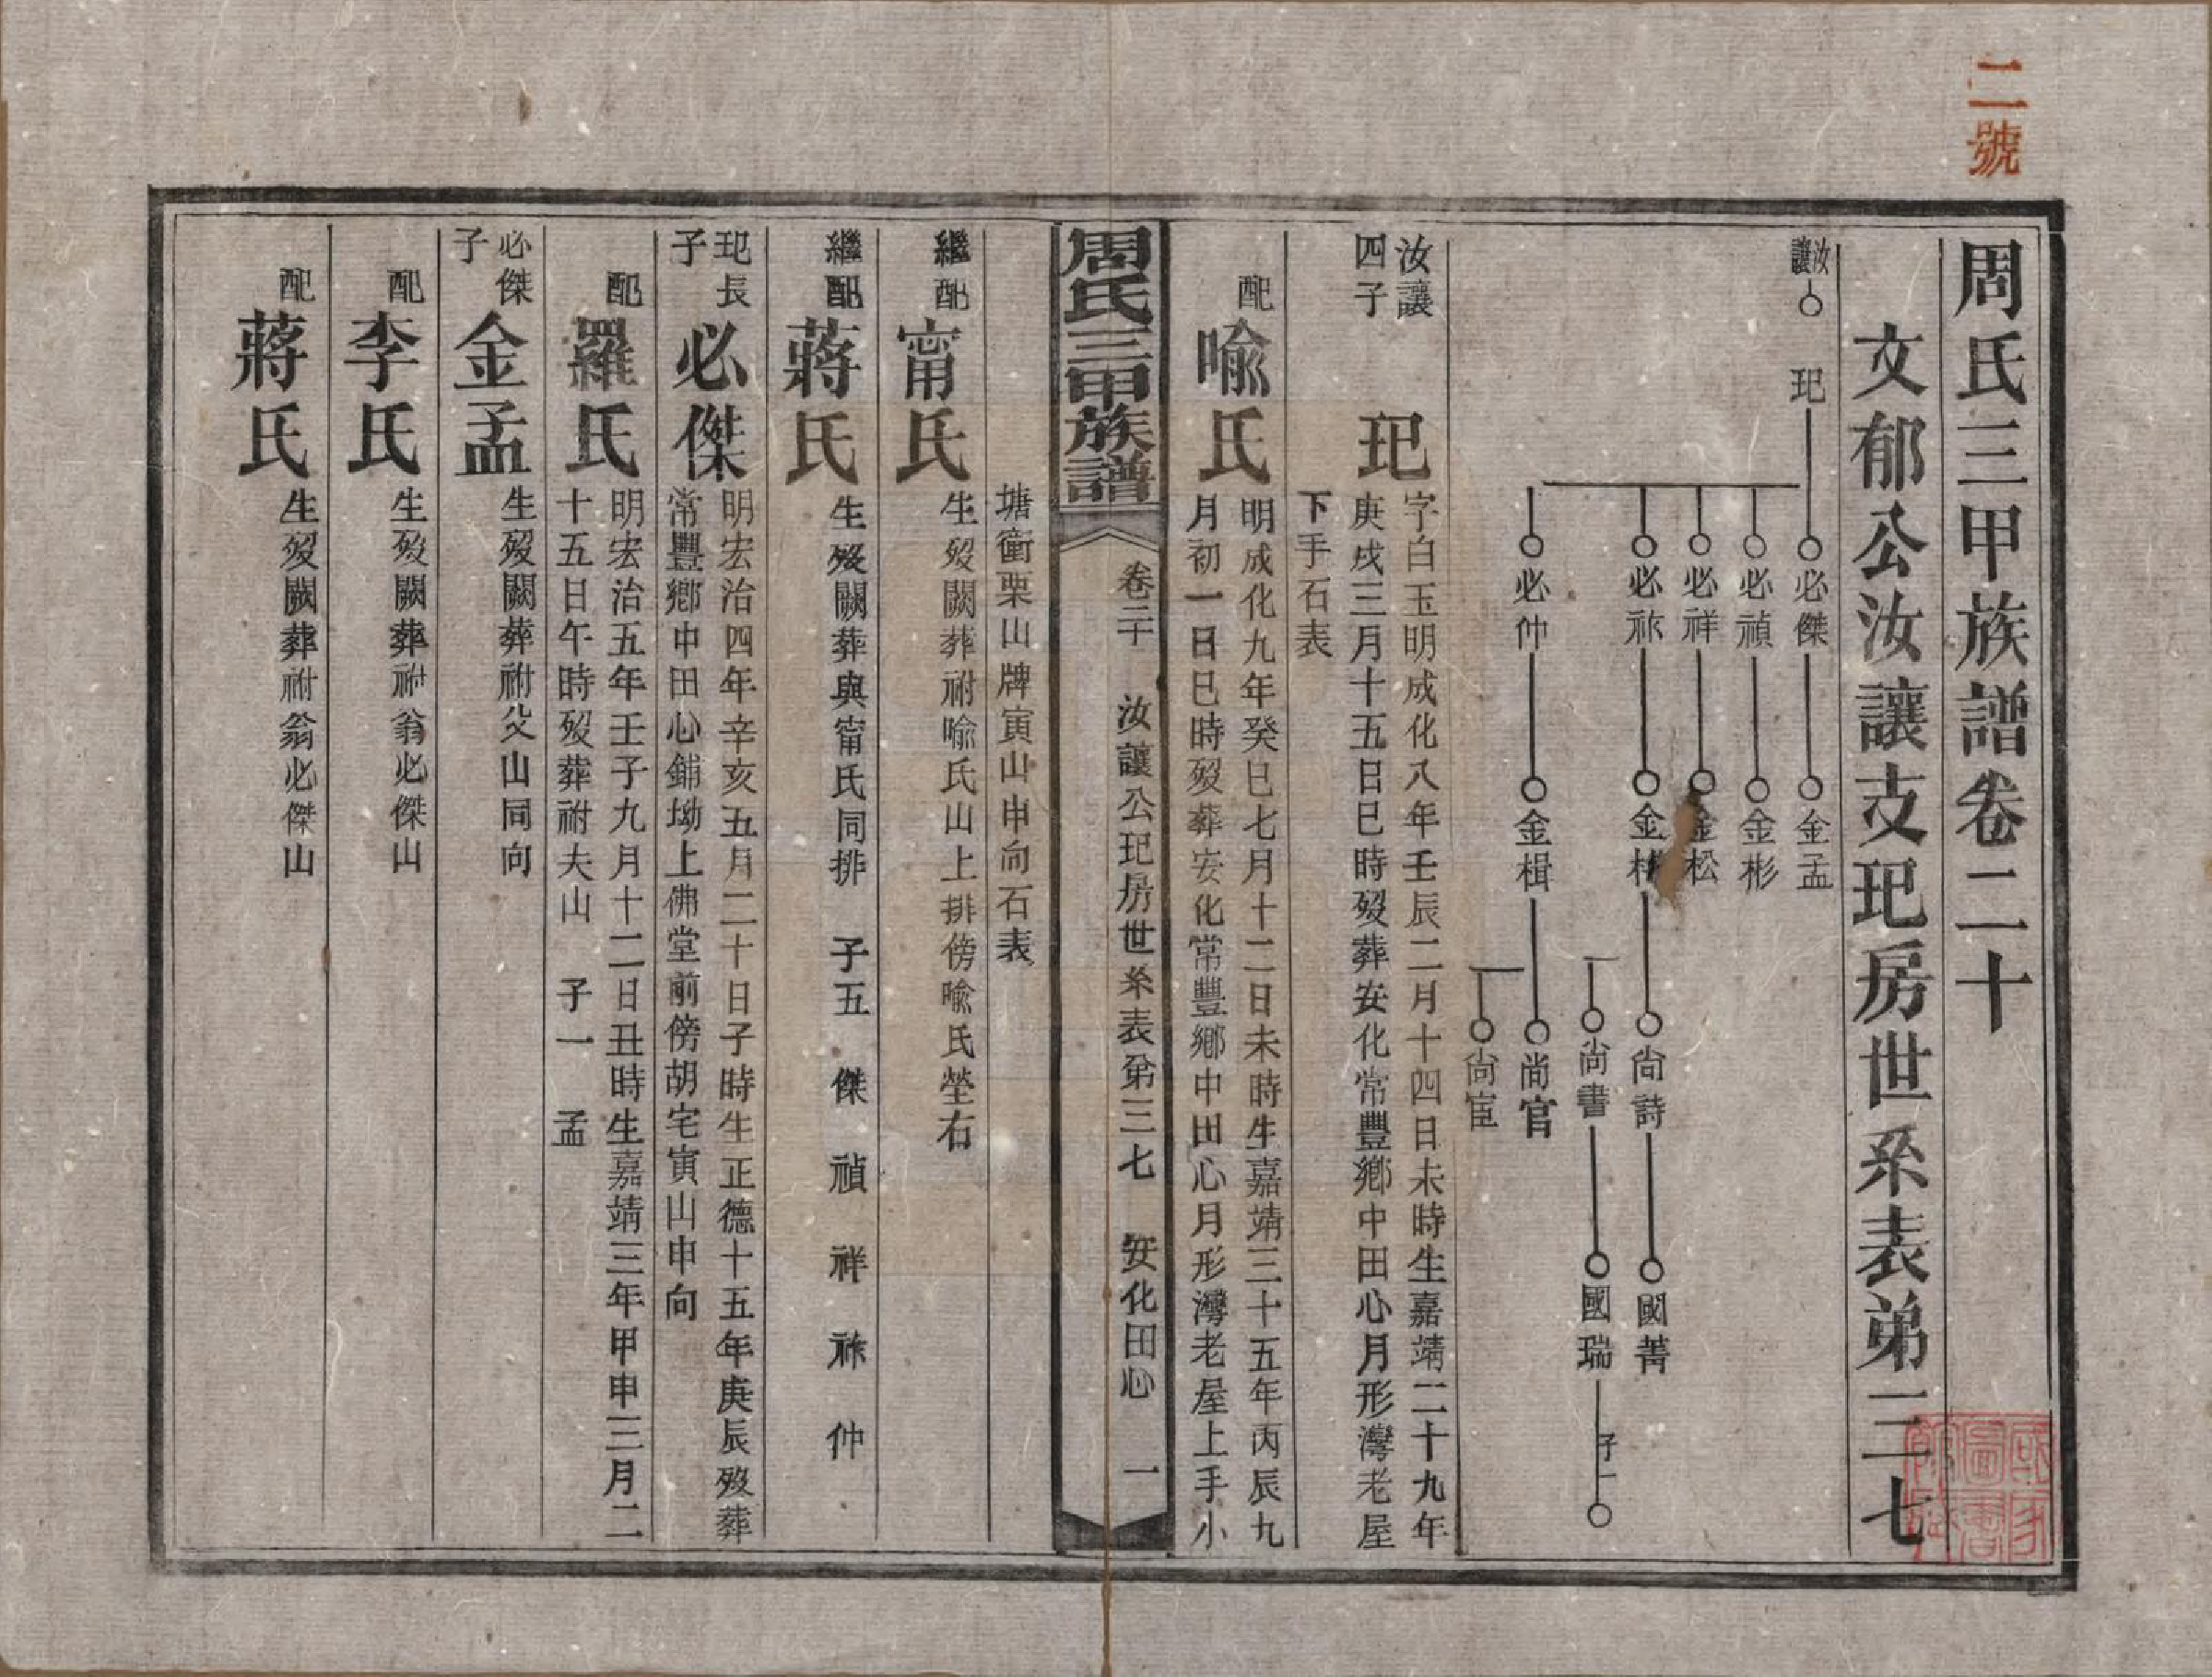 二號
周氏三甲族譜卷二十
文郁公汝讓支玘房世系表弟三七
汝讓 玘
必傑 金孟
必禎 金彬
必祥 金松
必祚 金 尚詩 國菁
尚書 國瑞 子一
必仲 金楫 尚官
尚宦
汝讓四子 玘 字白玉明成化八年壬辰二月十四日未時生嘉靖二十九年
庚戌三月十五日巳時歿葬安化常豐鄉中田心月形灣老屋
下手石表
配喻氏 明成化九年癸巳七月十二日未時生嘉靖三十五年丙辰九
月初一日巳時歿葬安化常豐鄉中田心月形灣老屋上手小
周氏三甲族譜 卷二十 汝讓公玘房世系表弟三七 安化田心 一
塘衝栗山牌寅山申向石表
繼配甯氏 生歿闕葬祔喻氏山上排傍喻氏塋右
繼配蔣氏 生歿闕葬與甯氏同排 子五 傑 禎 祥 祚 仲
玘長子 必傑 明宏治四年辛亥五月二十日子時生正德十五年庚辰歿葬
常豐鄉中田心鋪坳上佛堂前傍胡宅寅山申向
配羅氏 明宏治五年壬子九月十二日丑時生嘉靖三年甲申三月二
十五日午時歿葬祔夫山 子一 孟
必傑子 金孟 生歿闕葬祔父山同向
配李氏 生歿闕葬祔翁必傑山
配蔣氏 生歿闕葬祔翁必傑山